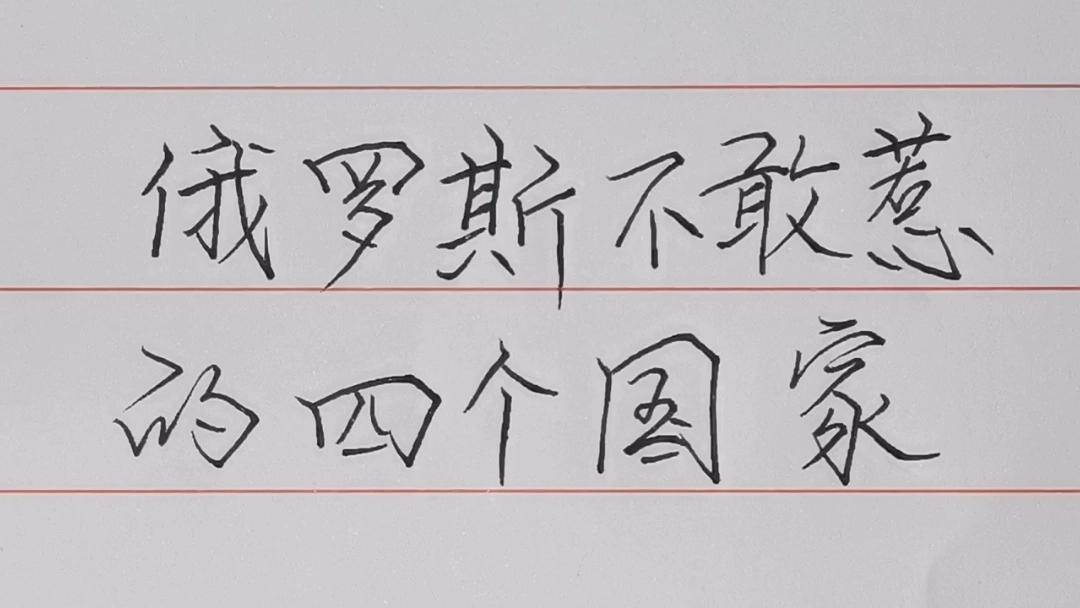 俄罗斯不敢惹
的四个国家